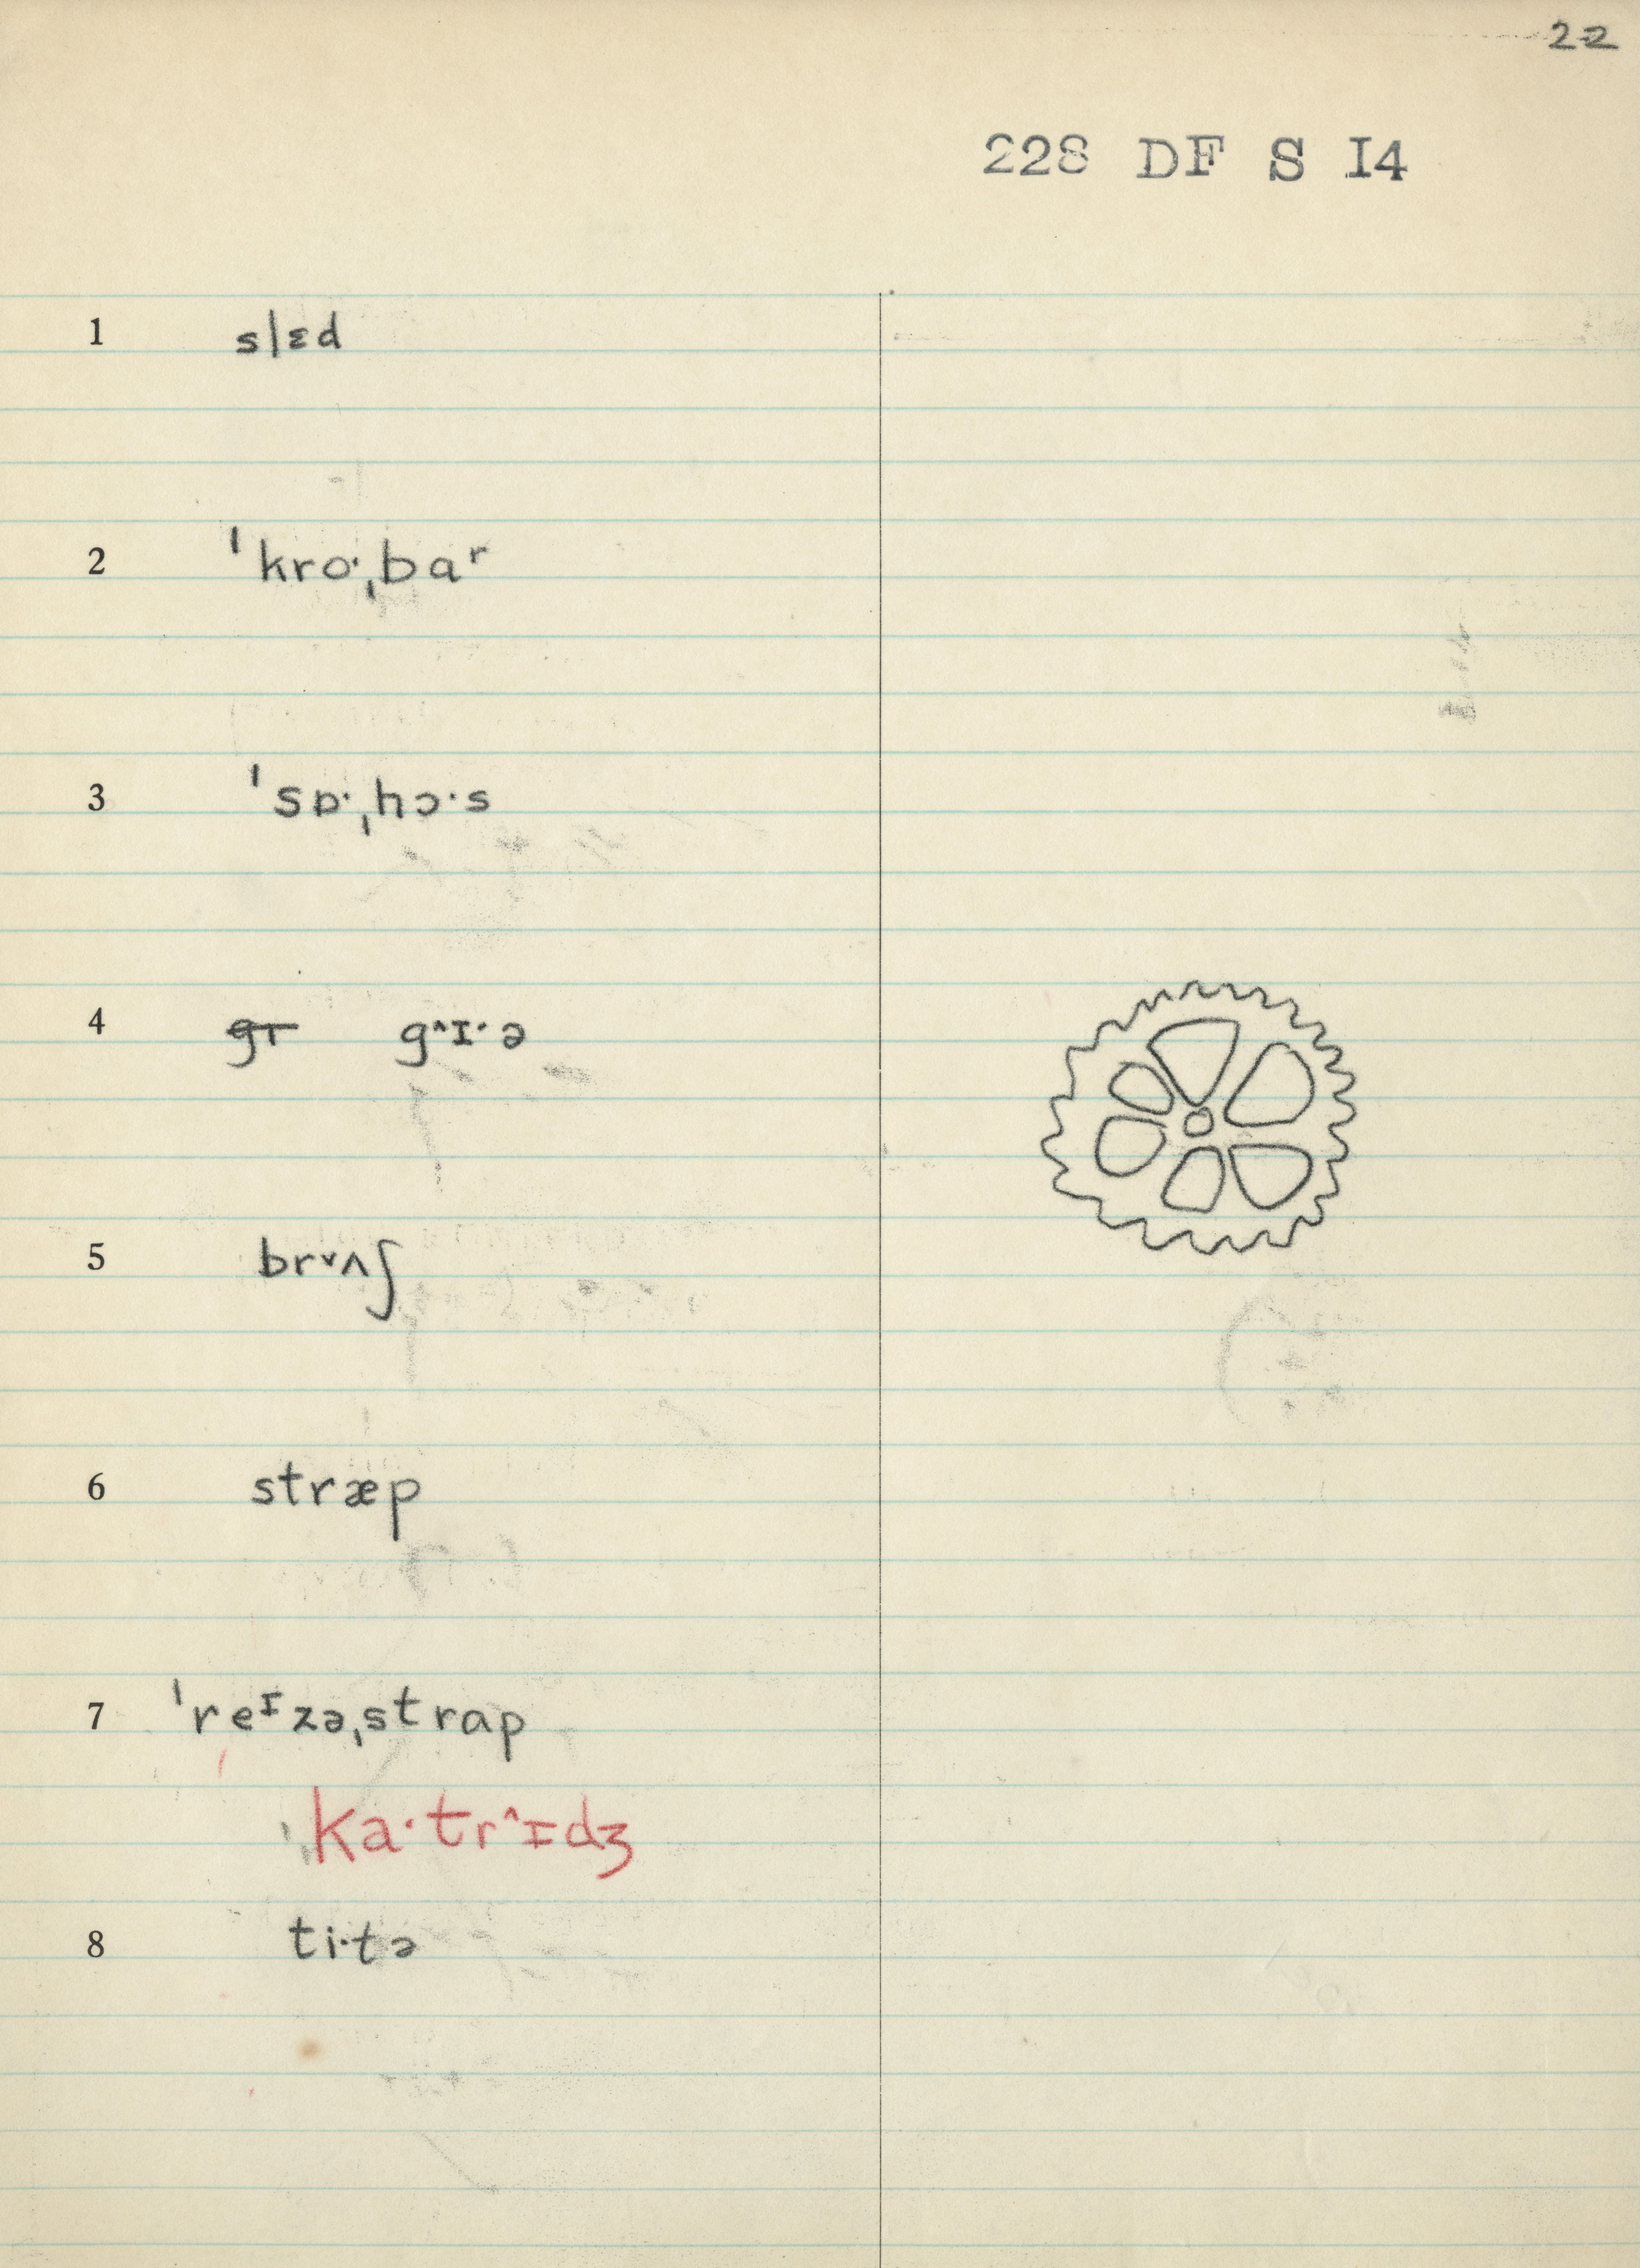 22
228 DF S I4
1 slɛd
2 ˈkro·ˌbaʳ
3 ˈsɒ·ˌhɔ·s
4 gɪ g^ɪ·ə
5 brᵛʌʃ
6 stræp
7 ˈreᶦzəˌstrap
ˈka·tr^ɪdʒ
8 ti·tə